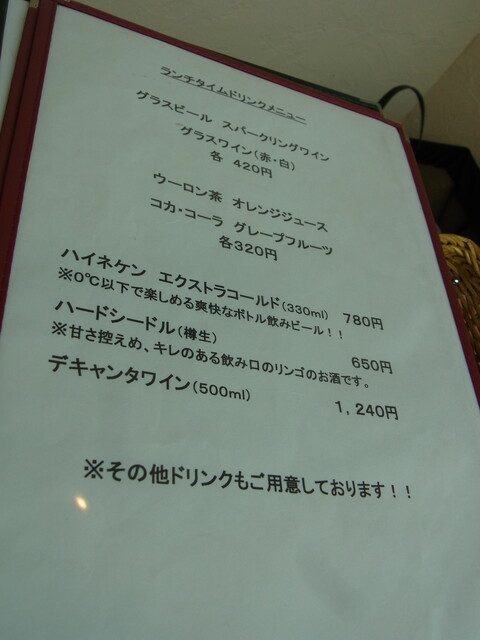 ランチタイムドリンクメニュー
グラスビール スパークリングワイン
グラスワイン(赤・白)
各 420円
ウーロン茶 オレンジジュース
コカ・コーラ グレープフルーツ
各320円
ハイネケン エクストラコールド(330ml) 780円
※0℃以下で楽しめる爽快なボトル飲みビール！！
ハードシードル(樽生) 650円
※甘さ控えめ、キレのある飲み口のリンゴのお酒です。
デキャンタワイン(500ml) 1,240円
※その他ドリンクもご用意しております！！